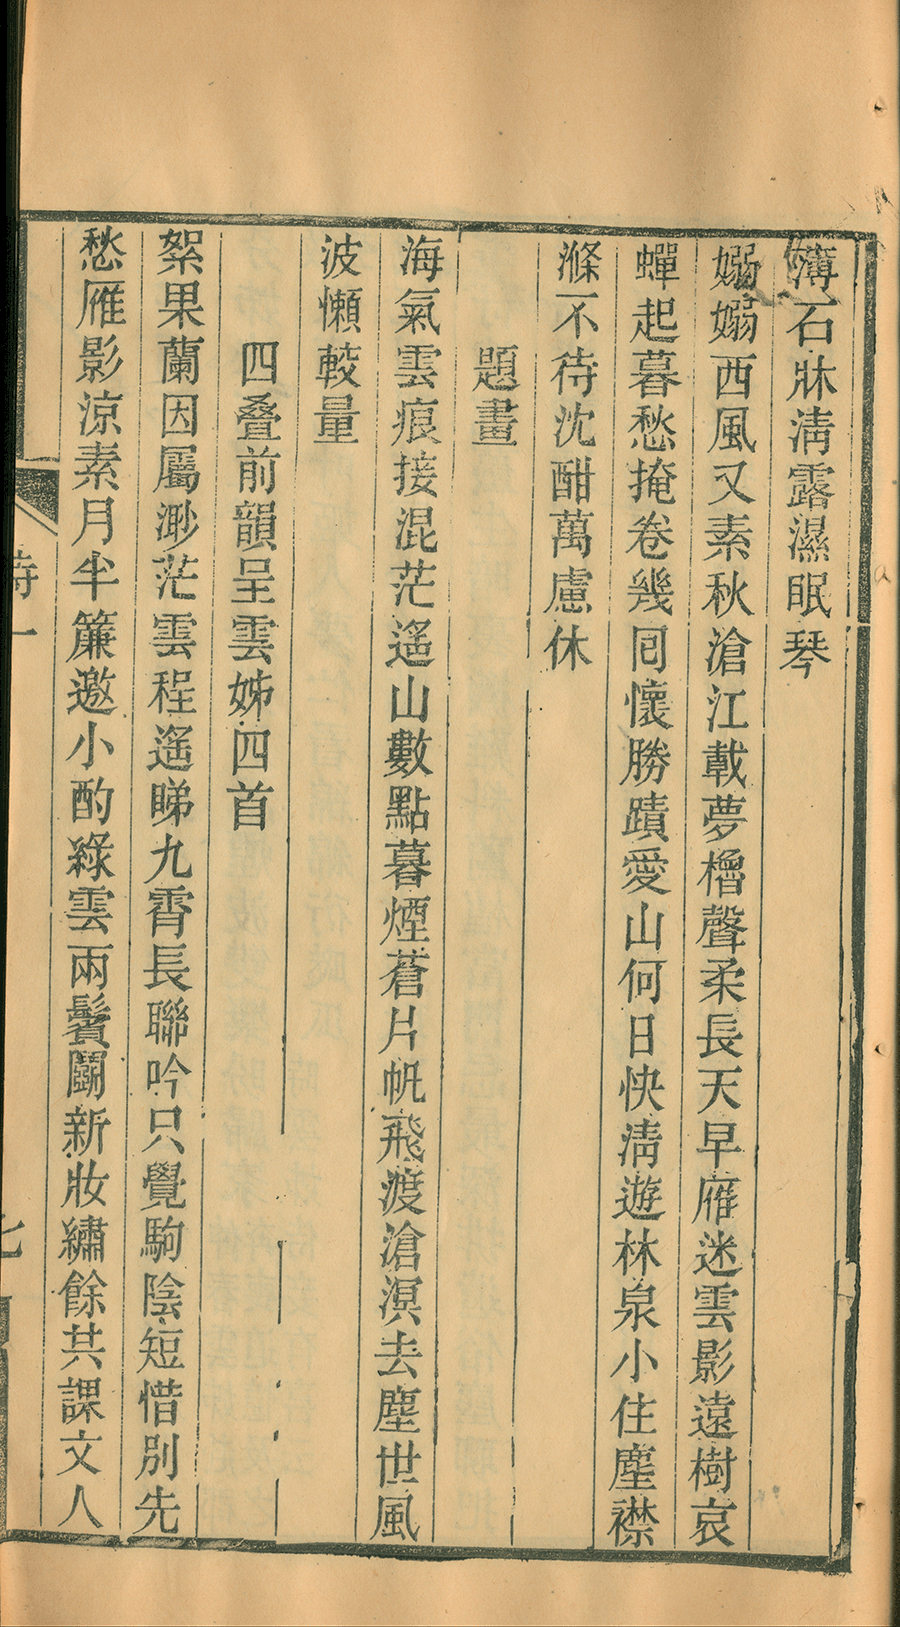 薄石牀清露濕眠琴
嫋嫋西風又素秋滄江載夢櫓聲柔長天早雁迷雲影遠樹哀
蟬起暮愁掩卷幾囘懷勝蹟愛山何日快淸遊林泉小住塵襟
滌不待沈酣萬慮休
題畫
海氣雲痕接混茫遙山數點暮煙蒼片帆飛渡滄溟去塵世風
波懶較量
四叠前韻呈雲姊四首
絮果蘭因屬渺茫雲程遙睇九霄長聯吟只覺駒陰短惜別先
愁雁影涼素月半簾邀小酌綠雲兩鬢鬭新妝繡餘共課文人
詩一